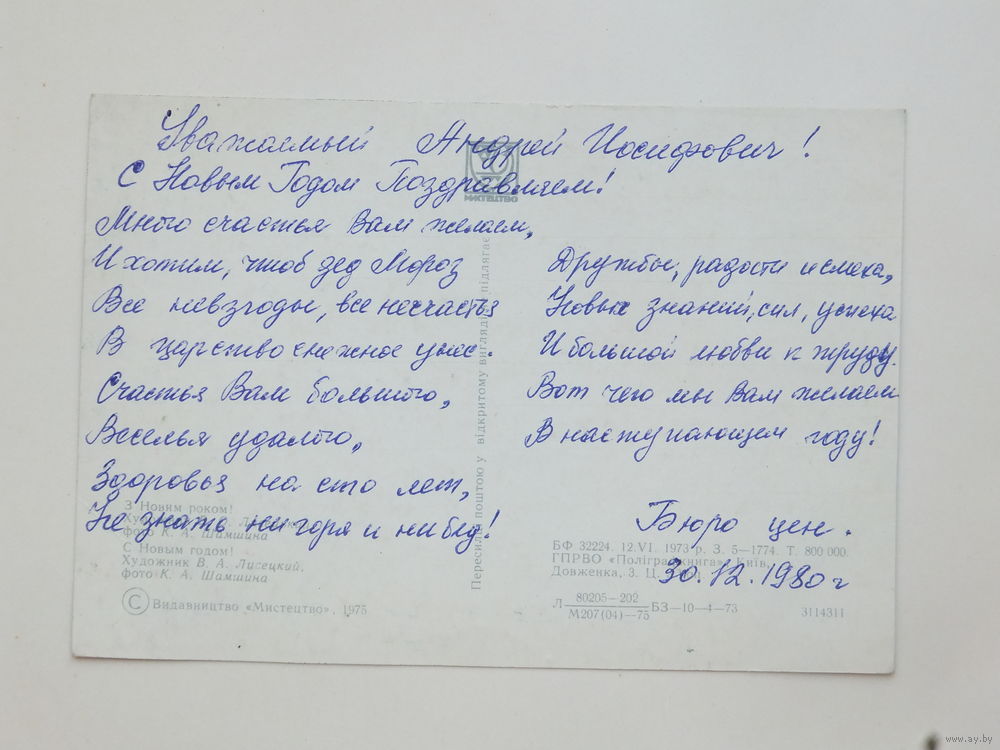 Уважаемый Андрей Иосифович!
С Новым Годом Поздравляем!
Много счастья Вам желаем,
И хотим, чтоб дед Мороз
Все невзгоды, все несчастья
В царство снежное унес.
Счастья Вам большого,
Веселья удалого,
Здоровья на сто лет,
Не знать ни горя и ни бед!
Дружбы, радости и смеха,
Новых знаний, сил, успеха
И большой любви к труду.
Вот чего мы Вам желаем
В наступающем году!
Бюро цен.
30.12.1980 г
МИСТЕЦТВО
Пересилка поштою у відкритому вигляді підлягає
З Новим роком!
фото К. А. Шамшина
С Новым годом!
Художник В. А. Лисецкий,
фото К. А. Шамшина
© Видавництво «Мистецтво», 1975
БФ 32224. 12.VI. 1973 р. З. 5—1774. Т. 800 000.
ГПРВО «Поліграфкнига», Київ,
Довженка, 3. Ц.
Л 80205—202 / М207(04)—75 БЗ—10—4—73
3114311
www.ay.by